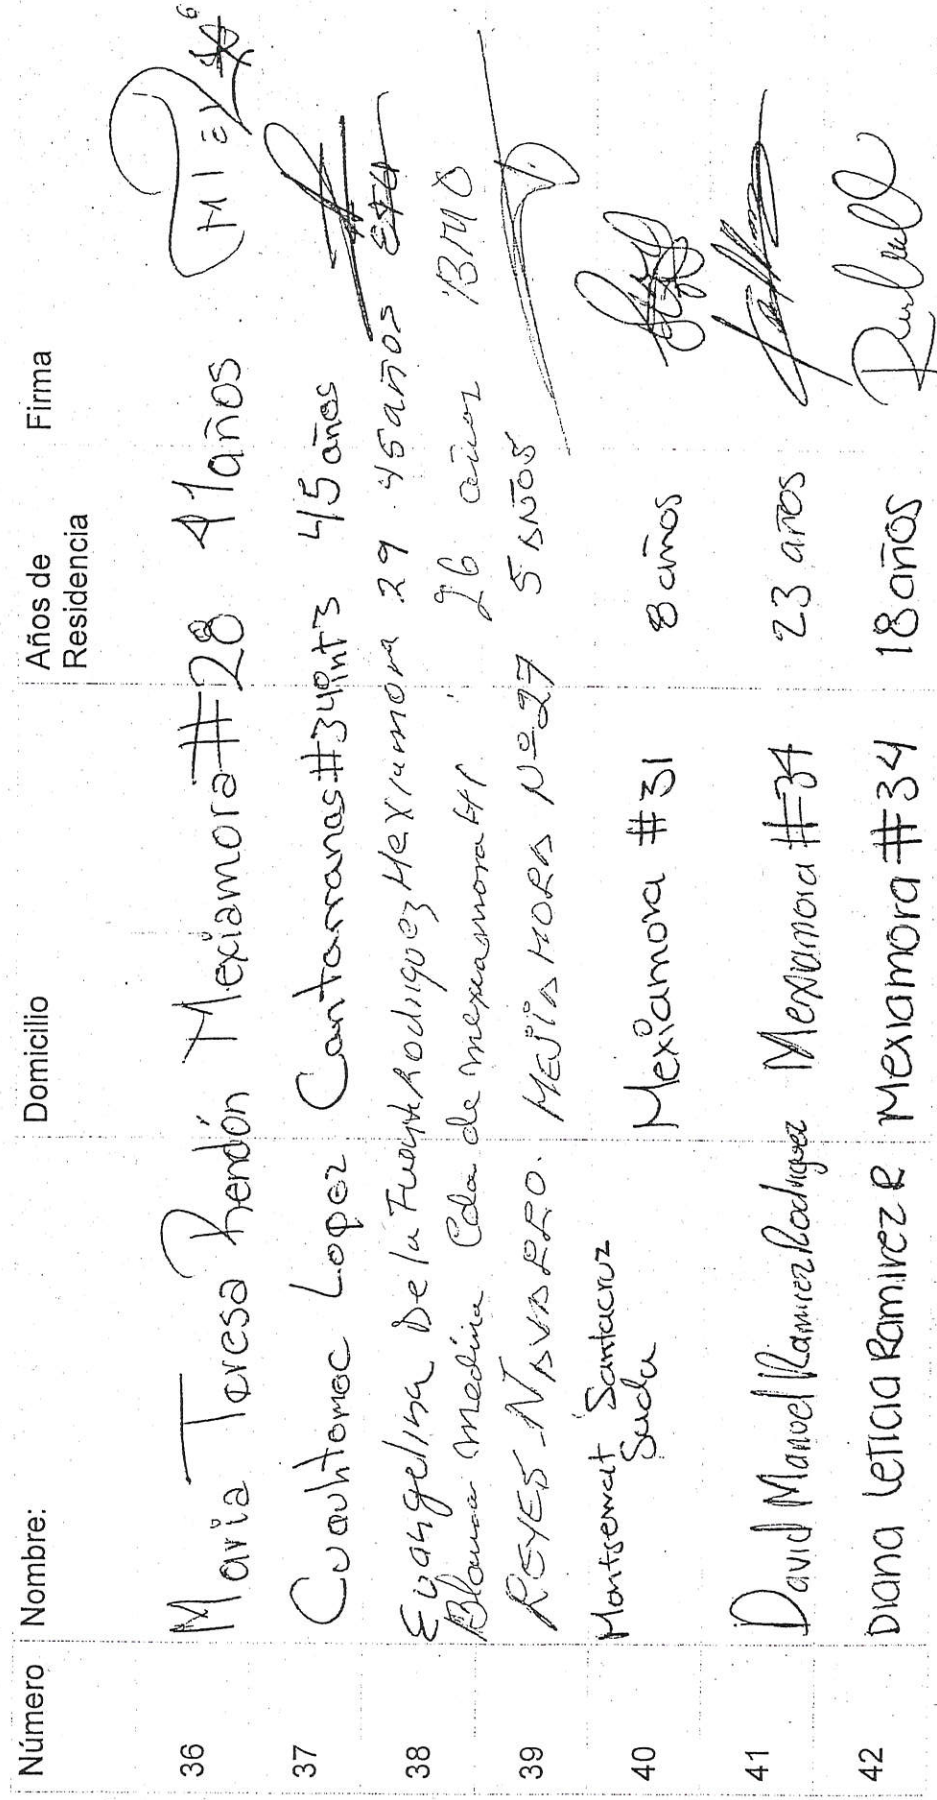 Número Nombre: Domicilio Años de Residencia Firma
36 Maria Teresa Rendón Mexiamora #28 41 años
37 Cuauhtemoc Lopez Cantarranas #34 int 3 45 años
38 Evangelina De la Fuente Rodriguez Mexiamora 29 45 años
Blanca medina Cda de mexiamora 26 años BMO
39 REYES NAVARRO. MEJIAMORA Nº 27 5 AÑOS
40 Montserrat Santacruz Mexiamora #31 8 años
41 David Manuel Ramirez Rodriguez Mexiamora #34 23 años
42 Diana Leticia Ramirez R Mexiamora #34 18 años